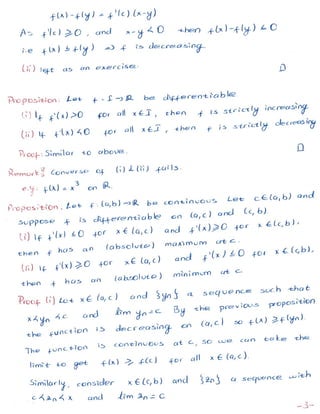 f(x)-f(y) = f'(c)(x-y)
As f'(c) ≥ 0, and x-y < 0 then f(x)-f(y) ≤ 0
i.e f(x) ≤ f(y) ⇒ f is decreasing
(ii) left as an exercise.
Proposition: Let f: I→R be differentiable
(i) If f'(x)>0 for all x∈I, then f is strictly increasing
(ii) If f'(x)<0 for all x∈I, then f is strictly decreasing
Proof: Similar to above.
Remark: Converse of (i) & (ii) fails.
e.g. f(x) = x³ on R.
Proposition: Let f:(a,b)→R be continuous Let c∈(a,b) and
suppose f is differentiable on (a,c) and (c,b)
(i) If f'(x) ≤0 for x∈(a,c) and f'(x)≥0 for x∈(c,b),
then f has an (absolute) maximum at c.
(ii) If f'(x) ≥0 for x∈(a,c) and f'(x) ≤0 for x∈(c,b),
then f has an (absolute) minimum at c
Proof (i) Let x∈(a,c) and {yn} a sequence such that
x<yn<c and lim yn=c By the previous proposition
the function is decreasing on (a,c) so f(x) ≥f(yn).
The function is continuous at c, so we can take the
limit to get f(x) ≥ f(c) for all x∈(a,c).
Similarly, consider x∈(c,b) and {zn} a sequence with
c<zn<x and lim zn=c
-3-